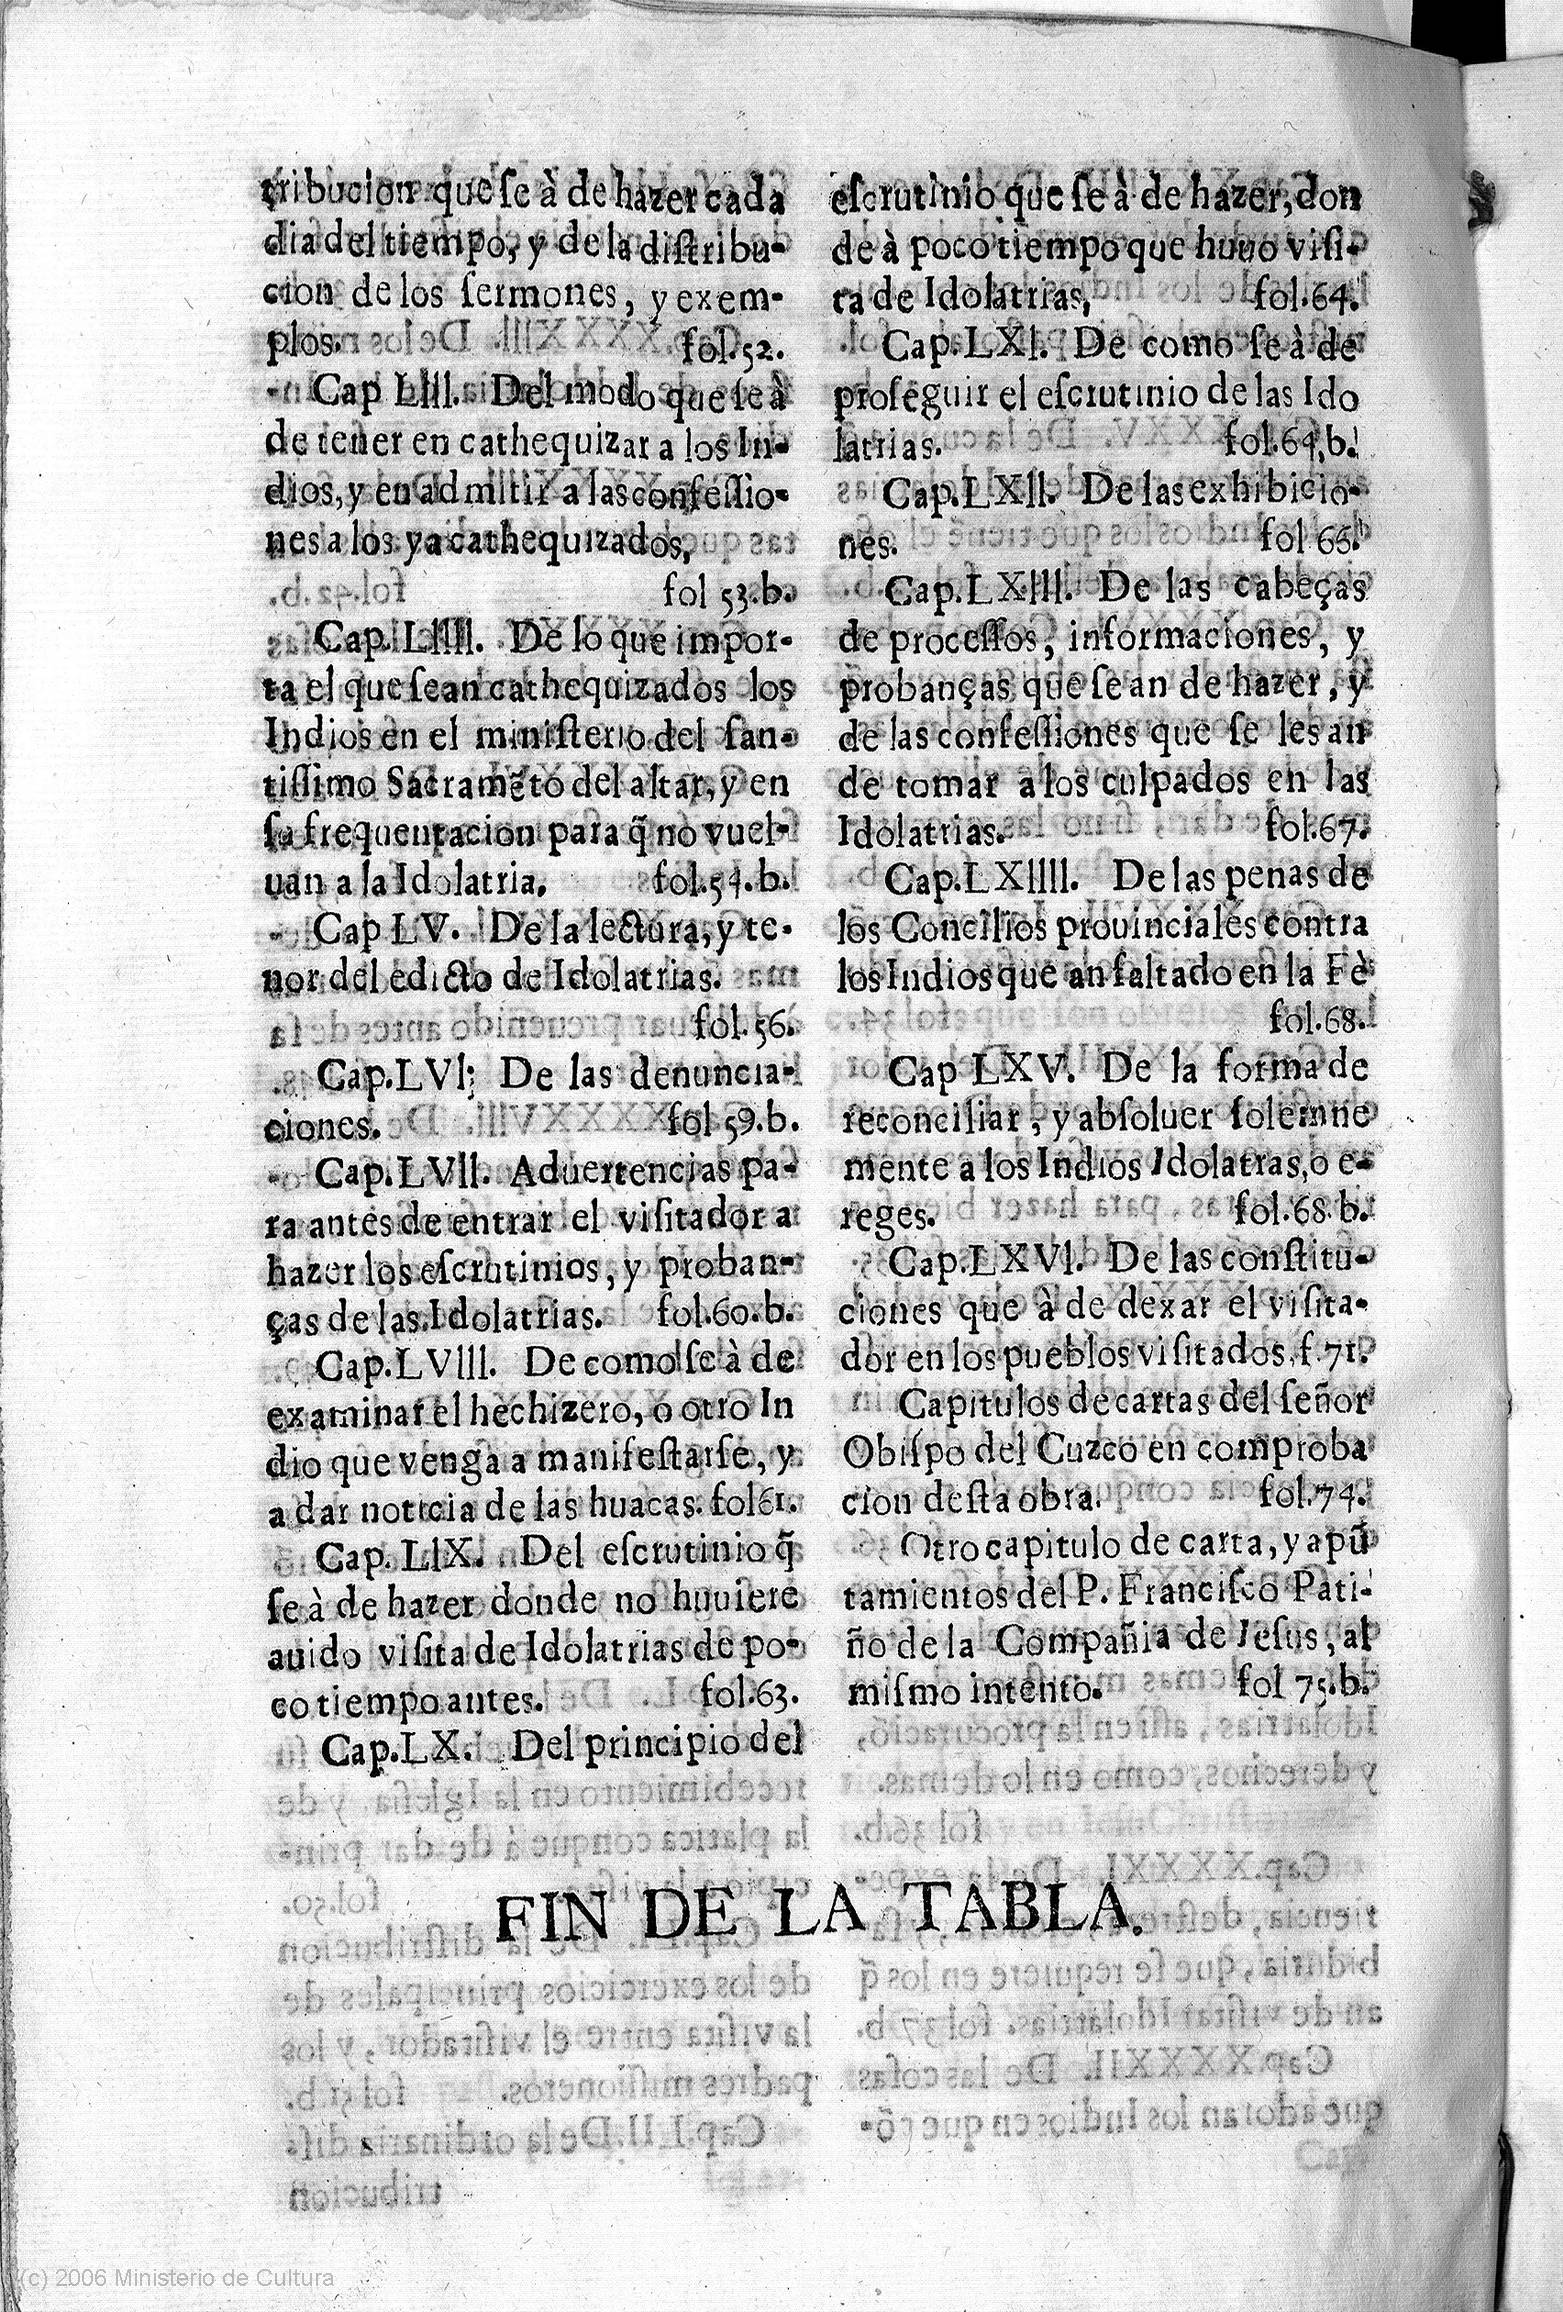 tribucion que ſe à de hazer cada
dia del tiempo, y de la diſtribu-
cion de los ſermones, y exem-
plos. fol.52.
Cap LIII. Del modo que ſe à
de tener en cathequizar a los In-
dios, y en admitir a las confeſſio-
nes a los ya cathequizados,
fol 53.b.
Cap. LIIII. De lo que impor-
ta el que ſean cathequizados los
Indios en el miniſterio del ſan-
tiſſimo Sacramẽto del altar, y en
ſu frequentacion para q̃ no vuel-
uan a la Idolatria. fol.54.b.
Cap LV. De la lectura, y te-
nor del edicto de Idolatrias.
fol.56.
Cap.LVI; De las denuncia-
ciones. fol 59.b.
Cap.LVII. Aduertencias pa-
ra antes de entrar el viſitador a
hazer los eſcrutinios, y proban-
ças de las Idolatrias. fol.60.b.
Cap.LVIII. De como ſe à de
examinar el hechizero, o otro In
dio que venga a manifeſtarſe, y
a dar noticia de las huacas. fol61.
Cap. LIX. Del eſcrutinio q̃
ſe à de hazer donde no huuiere
auido viſita de Idolatrias de po-
co tiempo antes. fol.63.
Cap.LX. Del principio del
eſcrutinio que ſe à de hazer, don
de à poco tiempo que huuo viſi-
ta de Idolatrias, fol.64.
Cap.LXI. De como ſe à de
proſeguir el eſcrutinio de las Ido
latrias. fol.64.b.
Cap.LXII. De las exhibicio-
nes. fol 66.
Cap.LXIII. De las cabeças
de proceſſos, informaciones, y
probanças que ſe an de hazer, y
de las confeſſiones que ſe les an
de tomar a los culpados en las
Idolatrias. fol.67.
Cap.LXIIII. De las penas de
los Concilios prouinciales contra
los Indios que an faltado en la Fè
fol.68.
Cap LXV. De la forma de
reconciliar, y abſoluer ſolemne
mente a los Indios Idolatras, o e-
reges. fol.68 b.
Cap.LXVI. De las conſtitu-
ciones que à de dexar el viſita-
dor en los pueblos viſitados. f.71.
Capitulos de cartas del ſeñor
Obiſpo del Cuzco en comproba
cion deſta obra. fol.74.
Otro capitulo de carta, y apũ
tamientos del P. Franciſco Pati-
ño de la Compañia de Ieſus, al
miſmo intento. fol 75.b.
FIN DE LA TABLA.
(c) 2006 Ministerio de Cultura